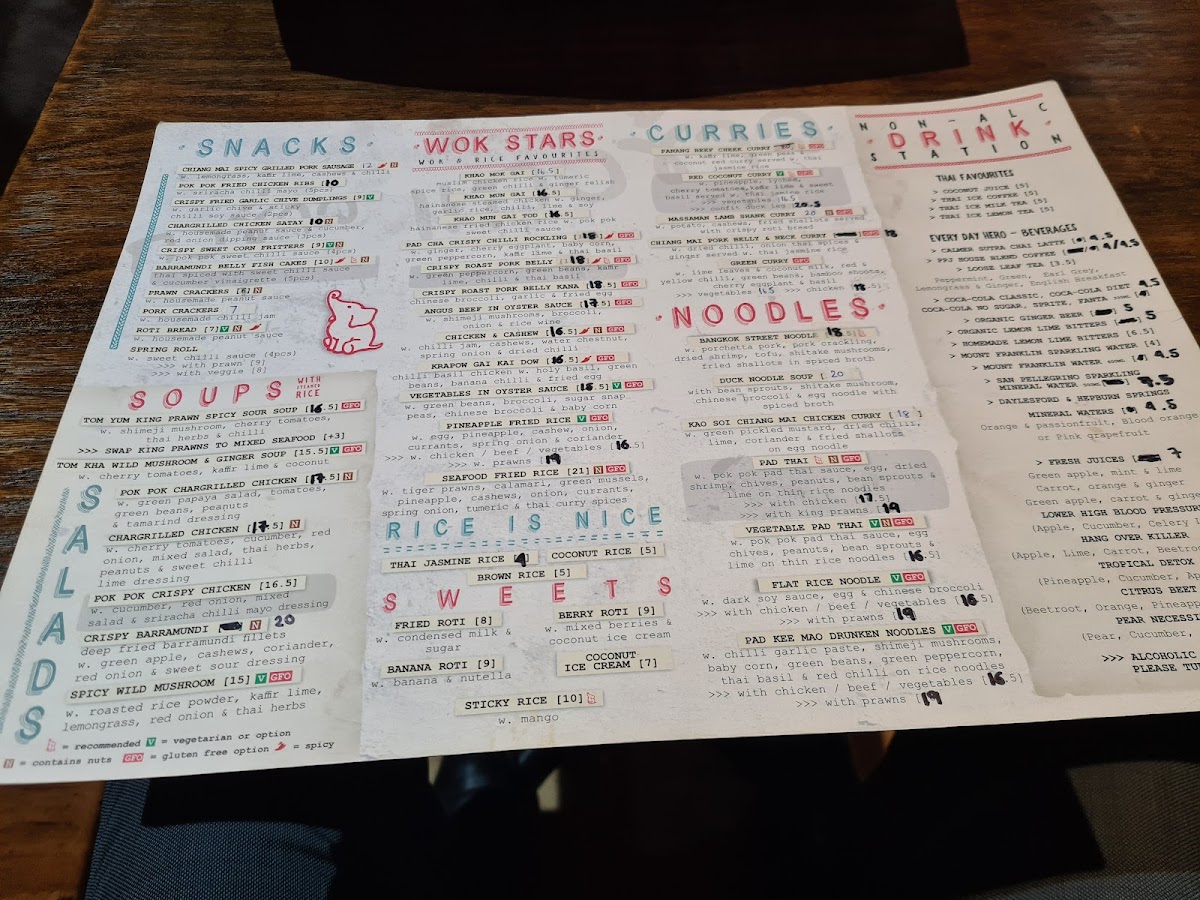 SNACKS
CHIANG MAI SPICY GRILLED PORK SAUSAGE 12 N
w. lemongrass, kaffir lime, cashews & chilli
POK POK FRIED CHICKEN RIBS [10]
w. sriracha chilli mayo (5pcs)
CRISPY FRIED GARLIC CHIVE DUMPLINGS [9] V
w. garlic chive & sticky
chilli soy sauce (2pcs)
CHARGRILLED CHICKEN SATAY 10 N
w. housemade peanut sauce & cucumber,
red onion dipping sauce (3pcs)
CRISPY SWEET CORN FRITTERS [9] V N
w. pok pok sweet chilli sauce (4pcs)
BARRAMUNDI BELLY FISH CAKES [10] N
thai spiced with sweet chilli sauce
& cucumber vinaigrette
PRAWN CRACKERS [6] N
w. housemade peanut sauce
PORK CRACKERS 7
w. housemade chilli jam
ROTI BREAD [7] V N
w. housemade peanut sauce
SPRING ROLL
w. sweet chilli sauce (4pcs)
>>> with prawn [9]
>>> with veggie [8]
SOUPS WITH STEAMED RICE
TOM YUM KING PRAWN SPICY SOUR SOUP [16.5] GFO
w. shimeji mushroom, cherry tomatoes,
thai herbs & chilli
>>> SWAP KING PRAWNS TO MIXED SEAFOOD [+3]
TOM KHA WILD MUSHROOM & GINGER SOUP [15.5] V GFO
w. cherry tomatoes, kaffir lime & coconut
SALADS
POK POK CHARGRILLED CHICKEN [17.5] N
w. green papaya salad, tomatoes,
green beans, peanuts
& tamarind dressing
CHARGRILLED CHICKEN [17.5] N
w. cherry tomatoes, cucumber, red
onion, mixed salad, thai herbs,
peanuts & sweet chilli
lime dressing
POK POK CRISPY CHICKEN [16.5]
w. cucumber, red onion, mixed
salad & sriracha chilli mayo dressing
CRISPY BARRAMUNDI N 20
deep fried barramundi fillets
w. green apple, cashews, coriander,
red onion & sweet sour dressing
SPICY WILD MUSHROOM [15] V GFO
w. roasted rice powder, kaffir lime,
lemongrass, red onion & thai herbs
= recommended V = vegetarian or option
N = contains nuts GFO = gluten free option = spicy
WOK STARS
WOK & RICE FAVOURITES
KHAO MOK GAI [16.5]
muslim chicken rice w. tumeric
spice rice, green chilli & ginger relish
KHAO MUN GAI [16.5]
hainanese steamed chicken w. ginger,
garlic rice, chilli, lime & soy
KHAO MUN GAI TOD [16.5]
hainanese fried chicken rice w. pok pok
PAD CHA CRISPY CHILLI ROCKLING [18] GFO
w. ginger, cherry eggplant, baby corn,
green peppercorn, kaffir lime & thai basil
CRISPY ROAST PORK BELLY [18] GFO
w. green peppercorn, green beans, kaffir
lime, chilli & thai basil
CRISPY ROAST PORK BELLY KANA [18.5] GFO
chinese broccoli, garlic & fried egg
ANGUS BEEF IN OYSTER SAUCE [17.5] GFO
w. shimeji mushrooms, broccoli,
onion & rice wine
CHICKEN & CASHEW [16.5] N GFO
w. chilli jam, cashews, water chestnut,
spring onion & dried chilli
KRAPOW GAI KAI DOW [16.5] GFO
chilli basil chicken w. holy basil, green
beans, banana chilli & fried egg
VEGETABLES IN OYSTER SAUCE [15.5] V GFO
w. green beans, broccoli, sugar snap
peas, chinese broccoli & baby corn
PINEAPPLE FRIED RICE V GFO
w. egg, pineapple, cashew, onion,
currants, spring onion & coriander
>>> w. chicken / beef / vegetables [16.5]
>>> w. prawns [19]
SEAFOOD FRIED RICE [21] N GFO
w. tiger prawns, calamari, green mussels,
pineapple, cashews, onion, currants,
spring onion, tumeric & thai curry spices
RICE IS NICE
THAI JASMINE RICE 4
COCONUT RICE [5]
BROWN RICE [5]
SWEETS
FRIED ROTI [8]
w. condensed milk &
sugar
BERRY ROTI [9]
w. mixed berries &
coconut ice cream
BANANA ROTI [9]
w. banana & nutella
COCONUT
ICE CREAM [7]
STICKY RICE [10]
w. mango
CURRIES
PANANG BEEF CHEEK CURRY GFO
w. kaffir lime, green peas &
coconut red curry served w. thai
jasmine rice
RED COCONUT CURRY V GFO
w. pineapple, lychee,
cherry tomatoes, kaffir lime & sweet
basil served w. thai jasmine rice
>>> vegetables 16.5
>>> confit duck leg 20.5
MASSAMAN LAMB SHANK CURRY 20 N GFO
w. potato, cashews, fried shallots served
with crispy roti bread
CHIANG MAI PORK BELLY & NECK CURRY GFO 18
w. dried chilli, onion thai spices &
ginger served w. thai jasmine rice
GREEN CURRY GFO
w. lime leaves & coconut milk, red &
yellow chilli, green beans, bamboo shoots,
cherry eggplant & basil
>>> vegetables 16.5 >>> chicken 18.5
NOODLES
BANGKOK STREET NOODLE 18.5
w. porchetta pork, pork crackling,
dried shrimp, tofu, shitake mushrooms,
fried shallots in spiced broth
DUCK NOODLE SOUP [ 20
with bean sprouts, shitake mushroom,
chinese broccoli & egg noodle with
spiced broth
KAO SOI CHIANG MAI CHICKEN CURRY [ 18 ]
w. green pickled mustard, dried chilli,
lime, coriander & fried shallots
on egg noodle
PAD THAI N GFO
w. pok pok pad thai sauce, egg, dried
shrimp, chives, peanuts, bean sprouts &
lime on thin rice noodles
>>> with chicken [17.5]
>>> with king prawns [19
VEGETABLE PAD THAI V N GFO
w. pok pok pad thai sauce, egg,
chives, peanuts, bean sprouts &
lime on thin rice noodles [16.5]
FLAT RICE NOODLE V GFO
w. dark soy sauce, egg & chinese broccoli
>>> with chicken / beef / vegetables [16.5]
>>> with prawns [19
PAD KEE MAO DRUNKEN NOODLES V GFO
w. chilli garlic paste, shimeji mushrooms,
baby corn, green beans, green peppercorn,
thai basil & red chilli on rice noodles
>>> with chicken / beef / vegetables [16.5]
>>> with prawns [19
NON-ALC
DRINK
STATION
THAI FAVOURITES
> COCONUT JUICE [5]
> THAI ICE COFFEE [5]
> THAI ICE MILK TEA [5]
> THAI ICE LEMON TEA [5]
EVERY DAY HERO - BEVERAGES
> CALMER SUTRA CHAI LATTE 4.5
> PPJ HOUSE BLEND COFFEE 4/4.5
> LOOSE LEAF TEA [3.5]
Peppermint, Green, Earl Grey,
Lemongrass & Ginger, English Breakfast
> COCA-COLA CLASSIC, COCA-COLA DIET 4.5
COCA-COLA NO SUGAR, SPRITE, FANTA
> ORGANIC GINGER BEER 5
> ORGANIC LEMON LIME BITTERS 5
> HOMEMADE LEMON LIME BITTERS [6.5]
> MOUNT FRANKLIN SPARKLING WATER [4]
> MOUNT FRANKLIN WATER 4.5
> SAN PELLEGRINO SPARKLING
MINERAL WATER 9.5
> DAYLESFORD & HEPBURN SPRINGS
MINERAL WATERS 4.5
Orange & passionfruit, Blood orange
or Pink grapefruit
> FRESH JUICES 7
Green apple, mint & lime
Carrot, orange & ginger
Green apple, carrot & ginger
LOWER HIGH BLOOD PRESSURE
(Apple, Cucumber, Celery
HANG OVER KILLER
(Apple, Lime, Carrot, Beetroot
TROPICAL DETOX
(Pineapple, Cucumber,
CITRUS BEET
(Beetroot, Orange,
PEAR
(Pear, Cucumber,
>>> ALCOHOLIC
PLEASE